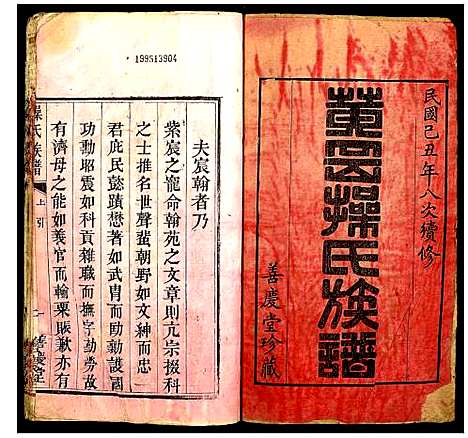 民國己丑年八次續修
黃岡操氏族譜
善慶堂珍藏
199513904
夫宸翰者乃
紫宸之寵命翰苑之文章則亢宗掇科
之士推名世聲蜚朝野如文紳而忠
君庶民彰懿蹟懋著如武胄而勛護國
功動昭震如科貢雜職而撫字勤勞故
有濟母之能如義官而輸粟賑歉亦有
操氏族譜
上 引
一
善慶堂